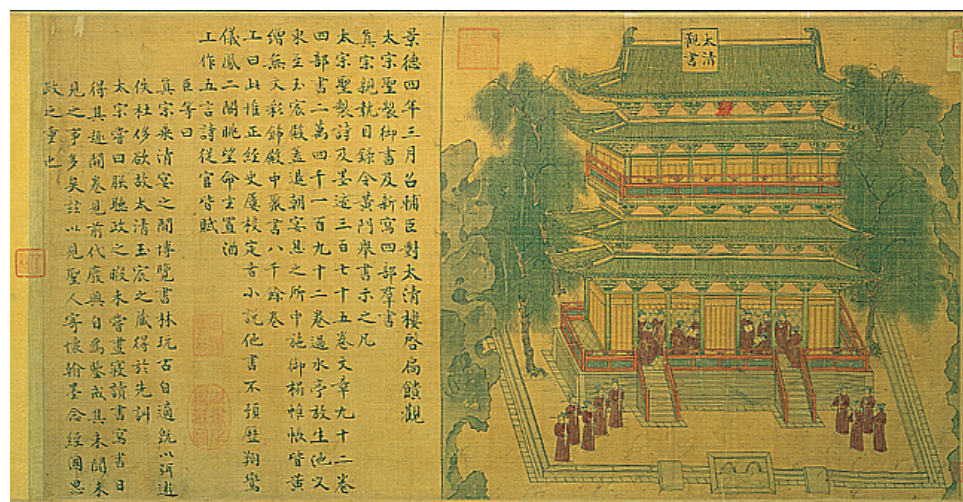 太清
觀書
景德四年三月召輔臣對太清樓啓扃鐍觀
太宗聖製御書及新寫四部羣書
真宗親執目錄令黃門舉書示之凡
太宗聖製詩及墨迹三百七十五卷文章九十二卷
四部書二萬四千一百九十二卷過水亭放生池又
東至玉宸殿蓋退朝宴息之所中施御榻帷帳皆黃
繒無文彩飾殿中聚書八千餘卷
上曰此惟正經史屢校定者小說他書不預歷翔鸞
儀鳳二閣眺望命坐置酒
上作五言詩從官皆賦
臣等曰
真宗乘清宴之閒博覽書林玩古自適既以弭遊
佚杜侈欲故太清玉宸之藏得於先訓
太宗嘗曰朕聽政之暇未嘗晝寢讀書寫書日
得其趣開卷見前代廢興自為鑒戒其未聞未
見之事多矣茲以見聖人寄懷翰墨念經國思
政之重也